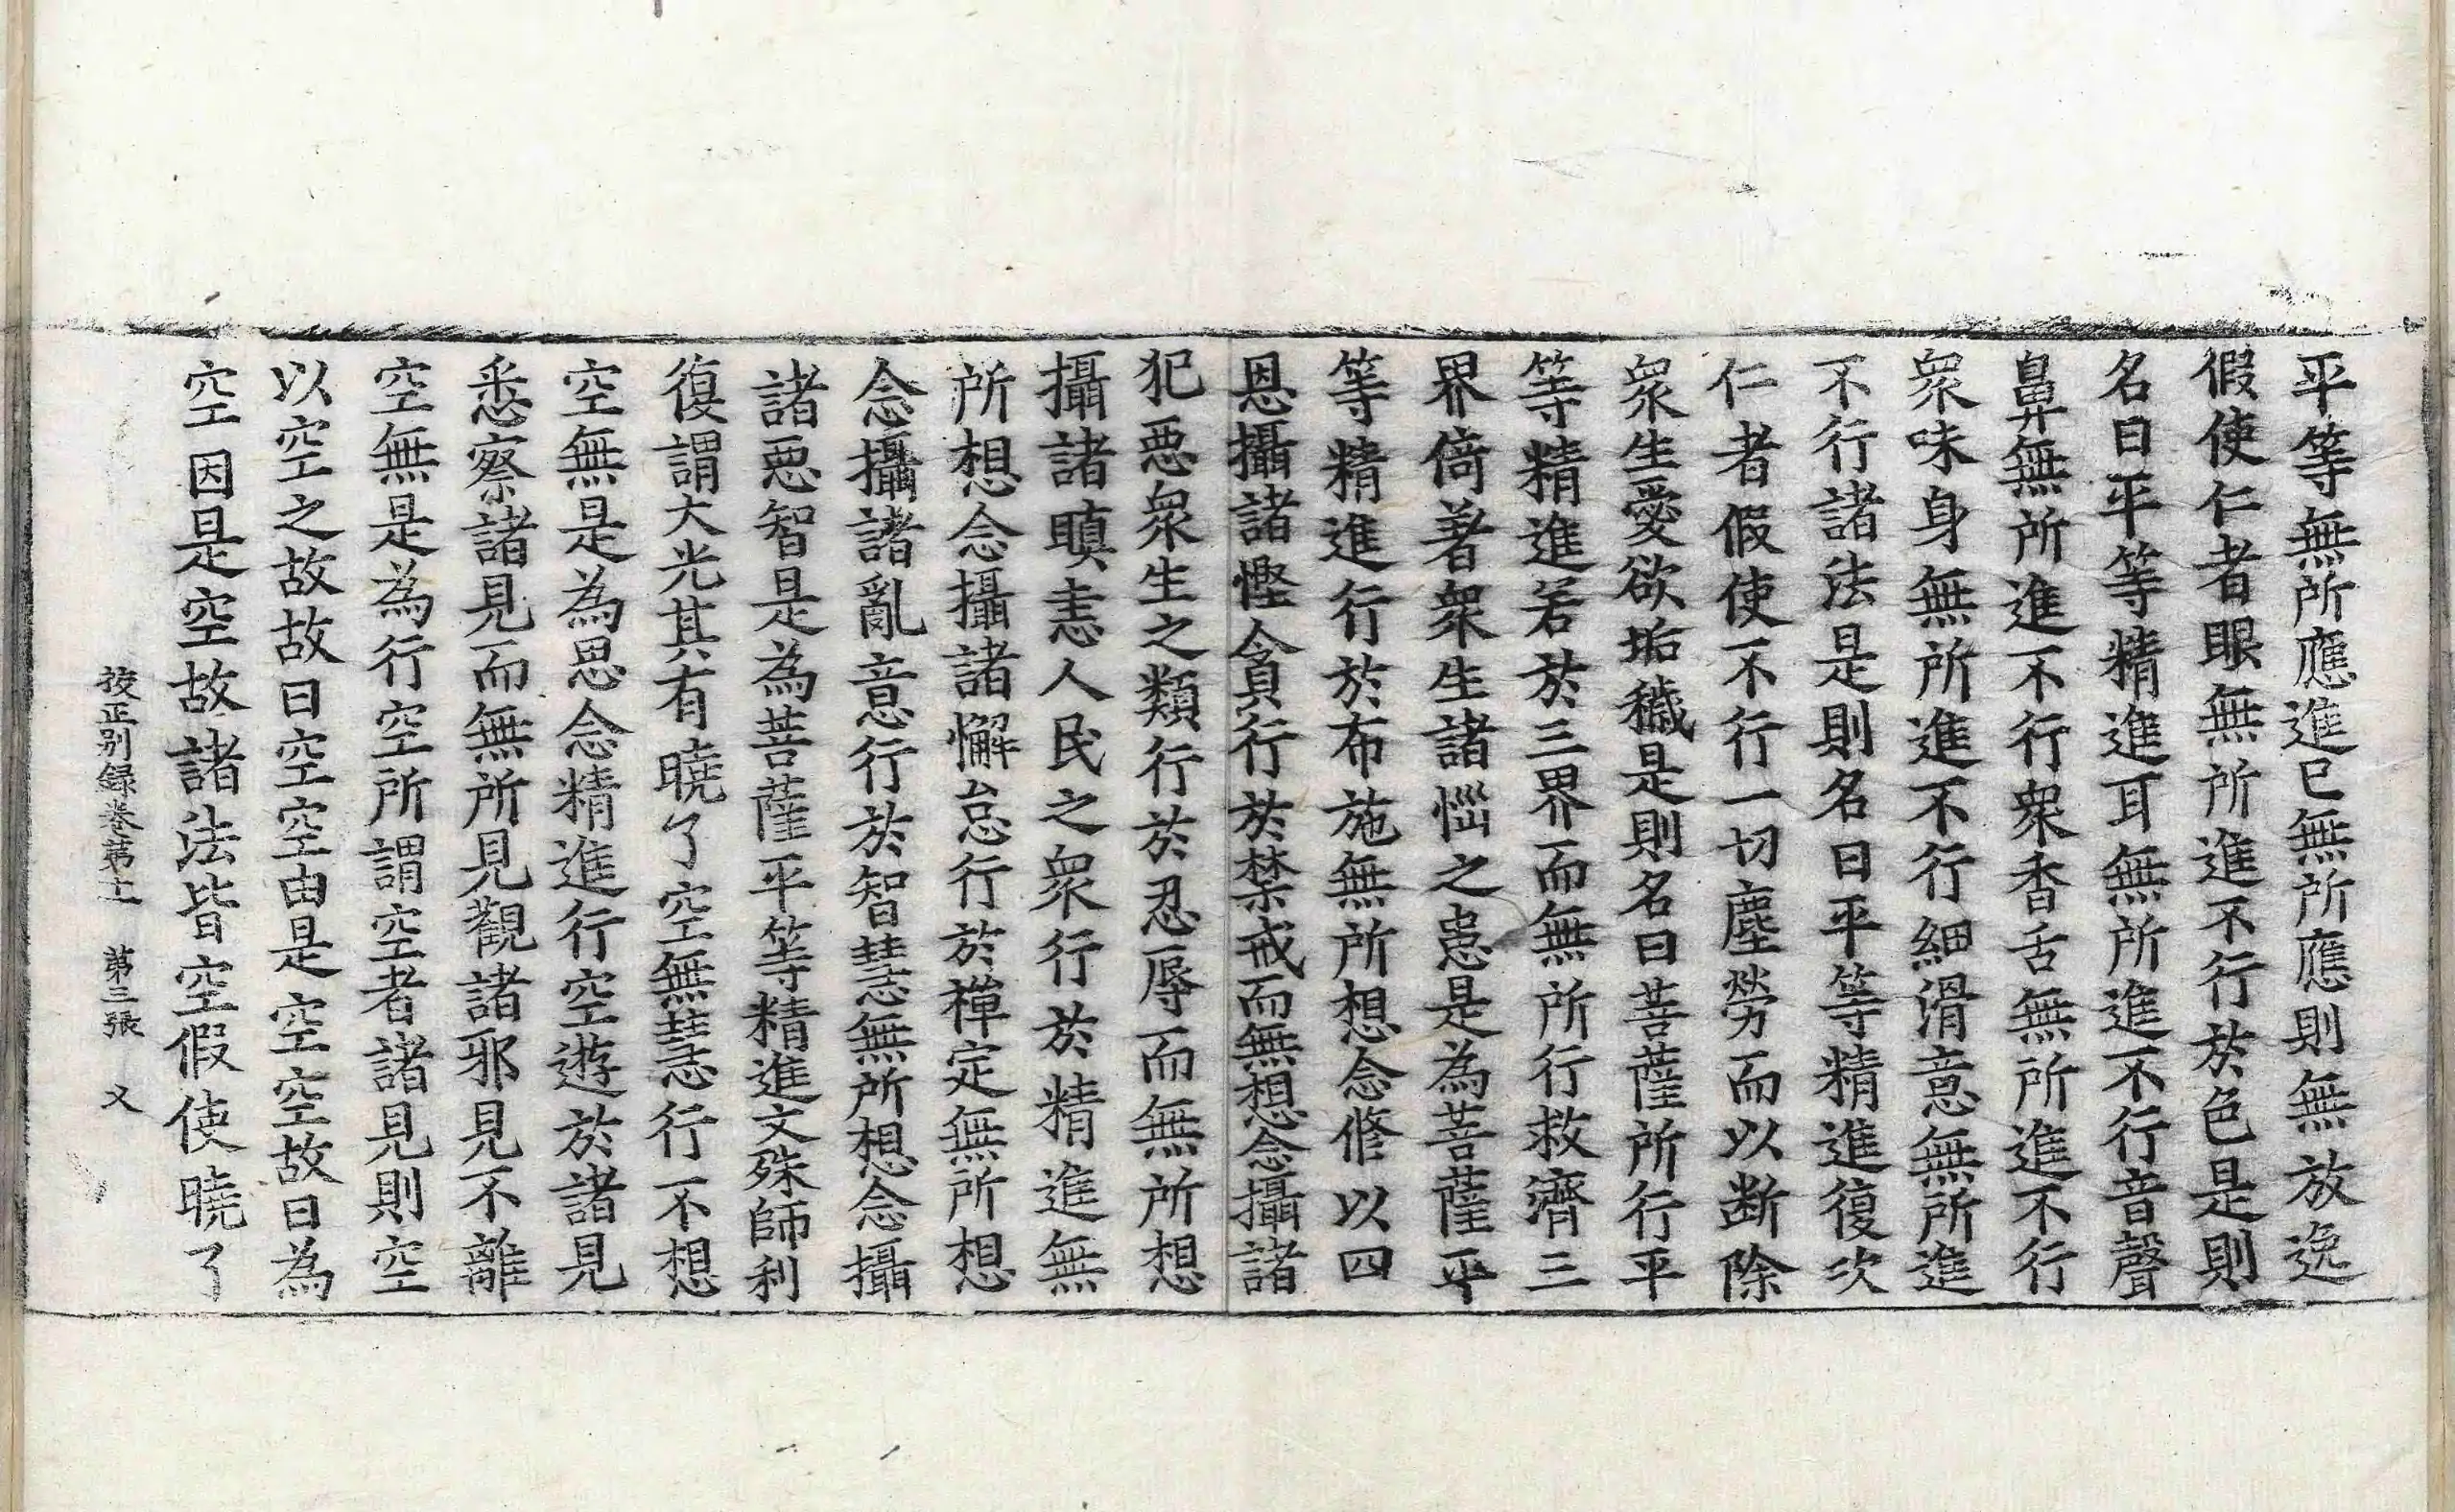 平等無所應進已無所應則無放逸
假使仁者眼無所進不行於色是則
名曰平等精進耳無所進不行音聲
鼻無所進不行衆香舌無所進不行
衆味身無所進不行細滑意無所進
不行諸法是則名曰平等精進復次
仁者假使不行一切塵勞而以斷除
衆生愛欲垢穢是則名曰菩薩所行平
等精進若於三界而無所行救濟三
界倚著衆生諸惱之患是為菩薩平
等精進行於布施無所想念修以四
恩攝諸慳貪行於禁戒而無想念攝諸
犯惡衆生之類行於忍辱而無所想
攝諸瞋恚人民之衆行於精進無
所想念攝諸懈怠行於禪定無所想
念攝諸亂意行於智慧無所想念攝
諸惡智是為菩薩平等精進文殊師利
復謂大光其有曉了空無慧行不想
空無是為思念精進行空遊於諸見
悉察諸見而無所見觀諸邪見不離
空無是為行空所謂空者諸見則空
以空之故故曰空空由是空空故曰為
空因是空故諸法皆空假使曉了
挍正別録卷第十 第三張 又